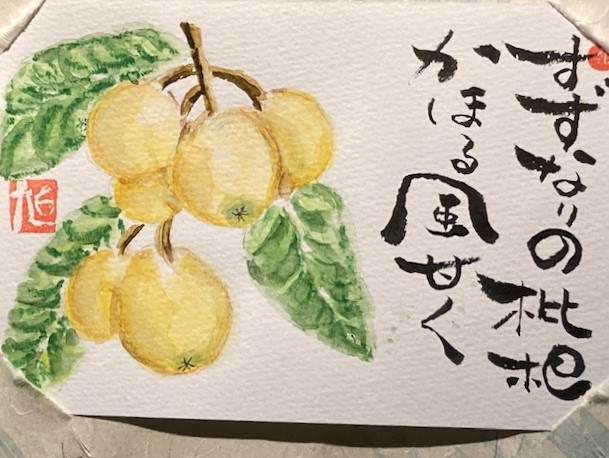 すずなりの枇杷
かほる風甘く
旭